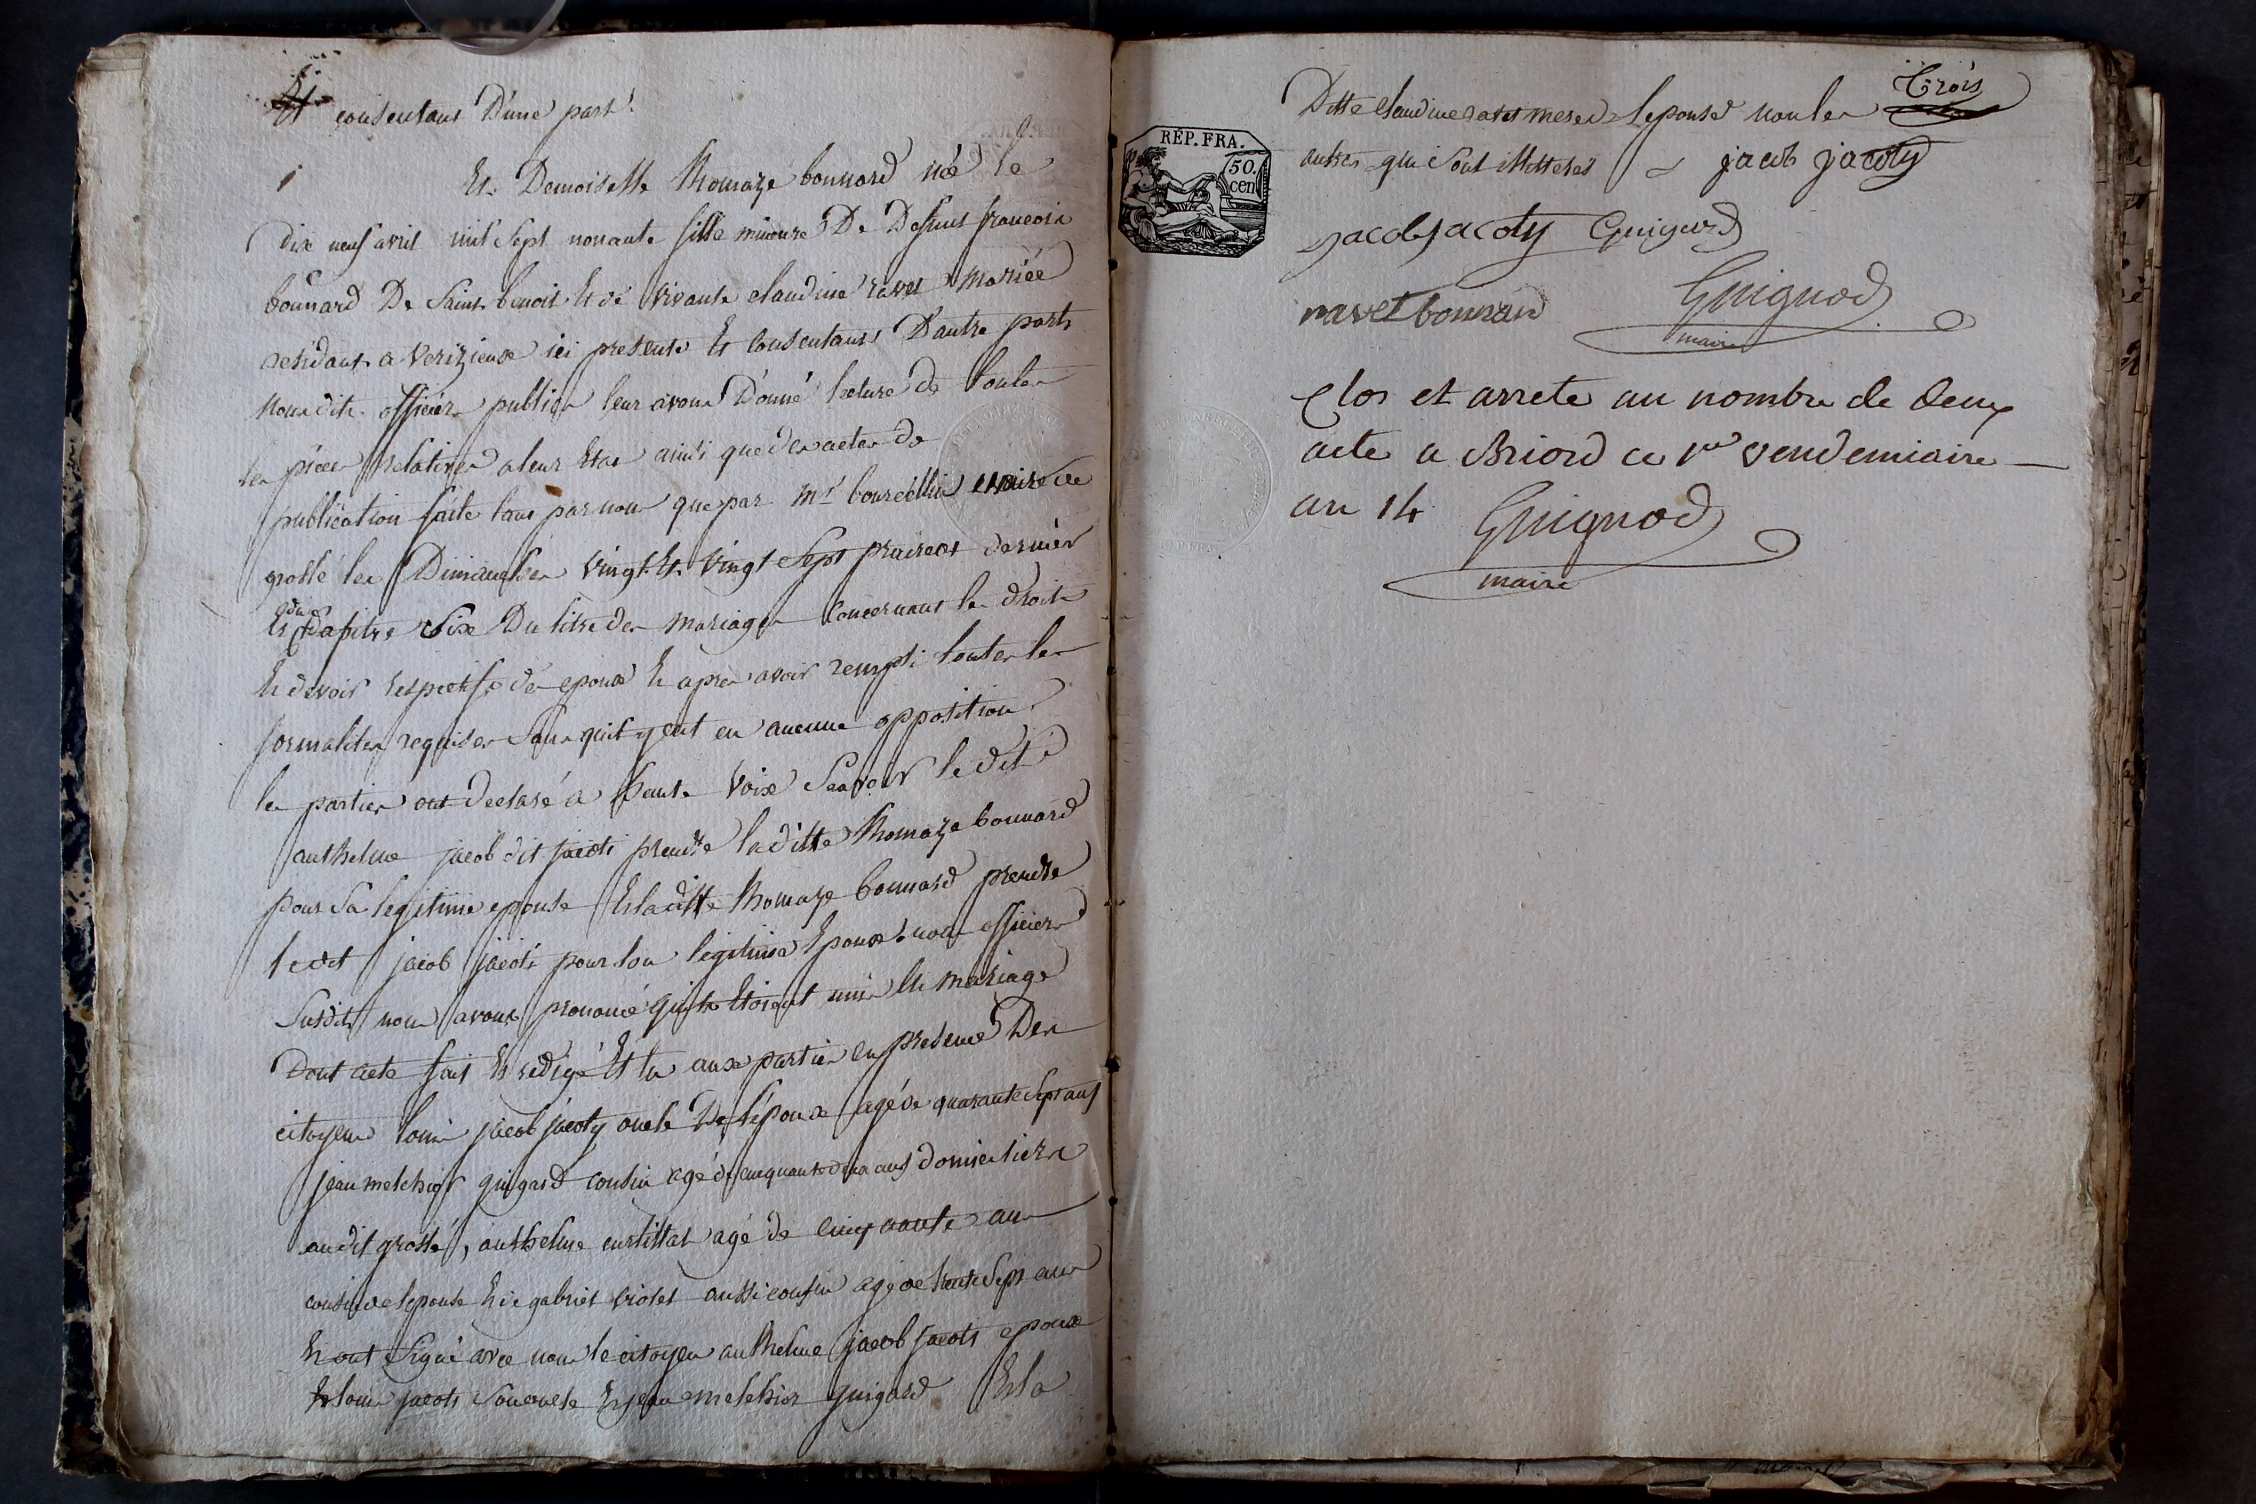 Et consentant D'une part.
Et Demoiselle thomaze bonnard née le
dix neuf avril mil Sept nonante fille mineure De Defunt francois
bonnard De Saint benoit Et de vivante claudine ravet Mariée
residant a Verizieux ici presente Et Consentant D'autre part
nous dit officier public leur avons Donné lecture de toutes
les pièces relatives a leur Etat ainsi que des actes de
publication faite tant par nous que par Mr bourcellin maire de
groslé les Dimanches vingt Et vingt Sept prairéal dernier
Et du chapitre Six Du titre des mariages Concernant les droits
Et devoir respectifs des epoux Et apres avoir rempli toutes les
formalites requises Sans quil y eut eu aucune opposition
les parties ont declaré a haute Voix Savoir le dit
anthelme jacob dit jacoti prendre la ditte thomaze bonnard
pour Sa legitime epouse Et la ditte thomaze bonnard prendre
le dit jacob jacoti pour Son legitime Epoux nous officier
Susdit nous avons prononcé quils Etoient unis En mariage
Dont acte fait Et redigé Et lu aux parties en presence Des
citoyens louis jacob jacoty oncle De l'epoux agé de quarante Sept ans
jean melchior guigard cousin agé de cinquante deux ans domiciliers
au dit groslé, anthelme curtillat agé de cinquante ans
cousin de lepouse Et de gabriel violet aussi cousin agé de trente Sept ans
Et ont Signé avec nous le citoyen anthelme jacob jacoti epoux
Et louis jacoti Son oncle Et jean melchior guigard Et la
Ditte claudine ravet mere de Lepouse non les Trois
autres qui Sont illitterés jacob jacoty
RÉP. FRA.
50.
cen
jacob jacoty Guigard
ravet bonnard Guignod
maire
Clos et arrete au nombre de deux
acte a Briord ce 1er vendemiaire
an 14 Guignod
maire